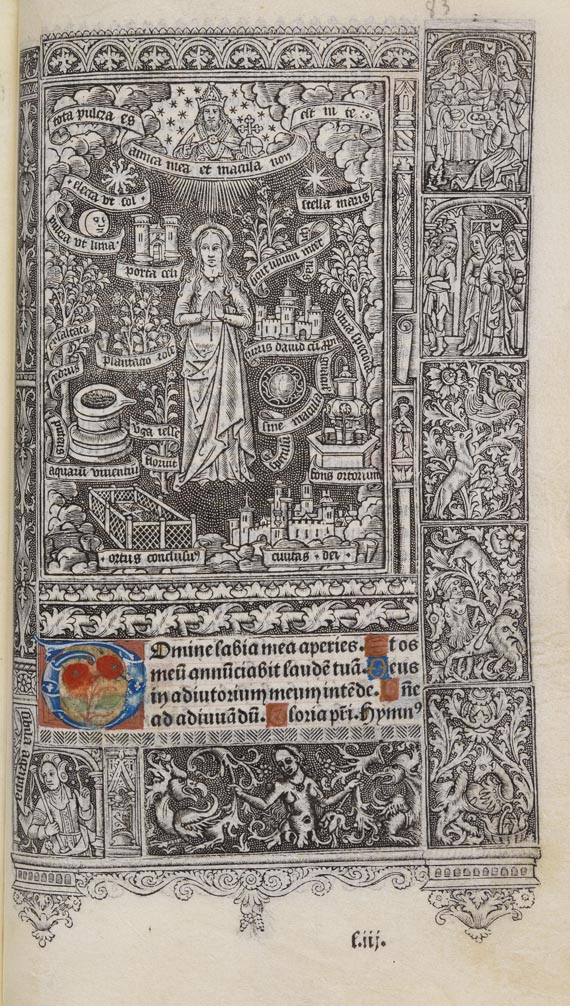 83
tota pulcra es
est in te
amica mea et macula non
electa vt sol
stella maris
pulcra vt luna
porta celi
sicut lilium inter
exaltata
cedrus
plantacio rose
turris dauid cū
oliua speciosa
puteus
aquarū viuentiū
v̄ga iesse
floruit
speculū
sine macula
fons ortorum
ortus conclusus
ciuitas dei
Domine labia mea aperies. Et os
meū annūciabit laudē tuā. Deus
in adiutorium meum intēde. Dn̄e
ad adiuuādū. Gloria pr̄i. Hymnꝰ
l.iij.